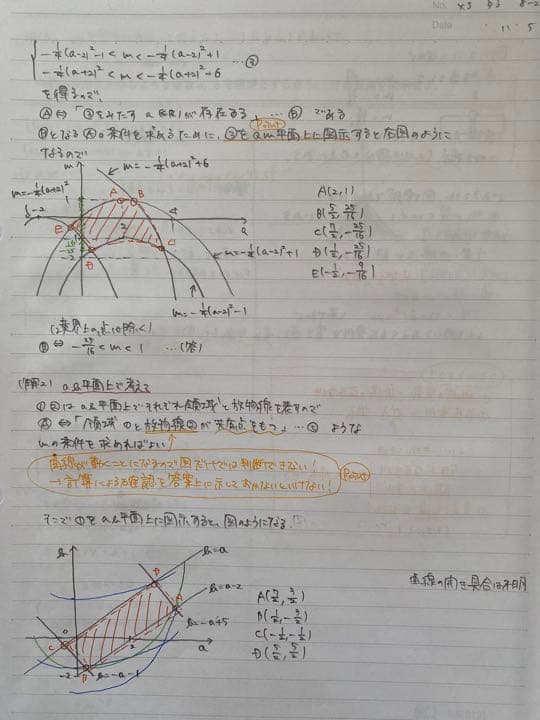 No. x5 P3 8-2
Date ・ 11 ・ 5
-¼(a-2)²-1 < m < -¼(a-2)²+1
-¼(a+2)² < m < -¼(a+2)²+6 … ③
を得るので、
Ⓐ ⇔ 「③をみたす a が存在する」 … Ⓑ である
Point
Ⓑとなる の条件を求めるために、③を a m 平面上に図示すると右図のように
なるので
m
m=-¼(a+2)²+6
m=-¼(a+2)²
-2
A B
1
4
a
E
2
C
D
-2
m=-¼(a-2)²+1
m=-¼(a-2)²-1
A(2,1)
B(5/2, 25/16)
C(7/2, -25/16)
D(1/2, -25/16)
E(-1/2, -9/16)
(境界上の点は除く)
Ⓑ ⇔ -25/16 < m < 1 … (答)
(解2) a b 平面上で考えて
①②は a b 平面上でそれぞれ「領域」と放物線を表すので
Ⓐ ⇔ 「領域①と放物線②が共有点をもつ」 … Ⓒ ような
mの条件を求めればよい
曲線が動くことになるので図だけでは判断できない!
→計算による確認を答案上に示しておかないといけない!
Point
そこで①を a b 平面上に図示すると、図のようになる。
b
b=a
D
b=a-2
A
b=-a+5
C
0
2
a
-2
B
b=-a-1
A(7/2, 3/2)
B(1/2, -3/2)
C(-1/2, -1/2)
D(5/2, 5/2)
曲線の開き具合は不明